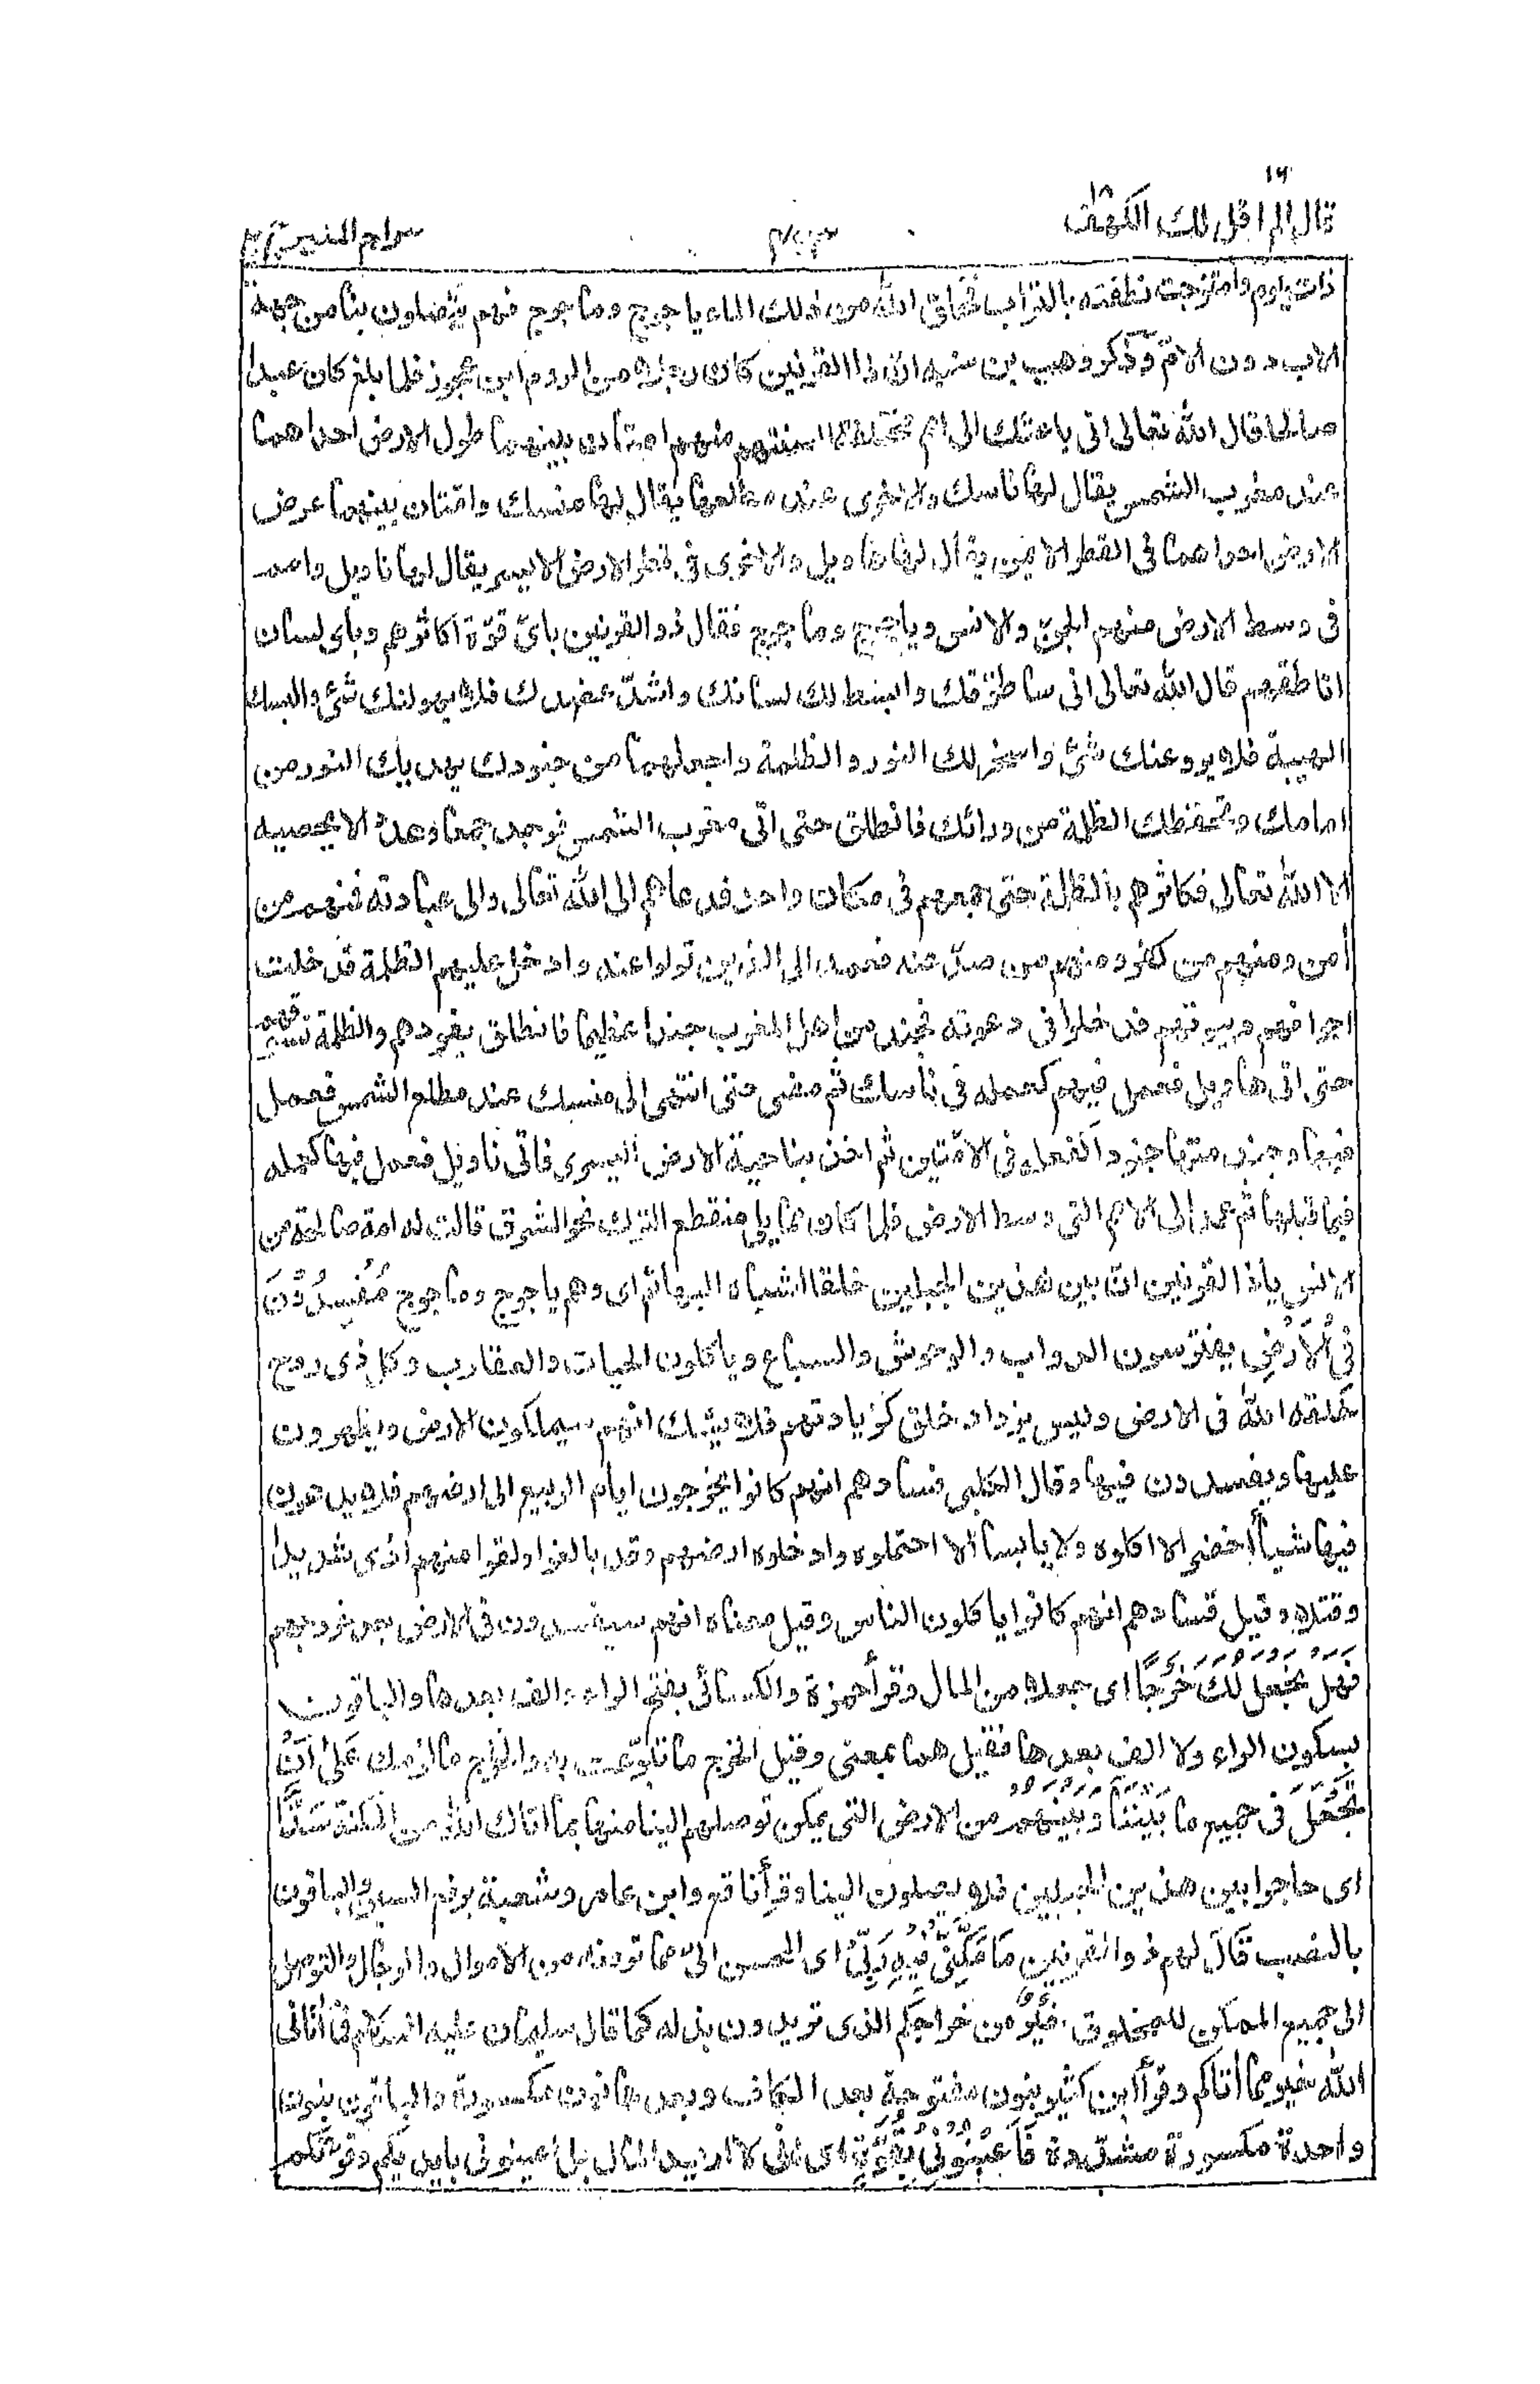 ١٦
قال الم اقل لك الكهف ١٨
سراج المنير
ذات يوم وامتزجت نطفته بالتراب فخلق الله من ذلك الماء ياجوج وماجوج فهم يتصلون بنا من جهة
الاب دون الامّ وذكر وهب بن منبه انّ ذا القرنين كان رجلا من الروم ابن عجوز فلما بلغ كان عبدا
صالحا قال الله تعالى انى باعثك الى امم مختلفة السنتهم منهم امتان بينهما طول الارض احداهما
عند مغرب الشمس يقال لها ناسك والاخرى عند مطلعها يقال لها منسك وامّتان بينهما عرض
الارض احداهما فى القطر الايمن يقال لها هاويل والاخرى فى قطر الارض الايسر يقال لها ناويل وامم
فى وسط الارض منهم الجنّ والانس وياجوج وماجوج فقال ذو القرنين باىّ قوّة اكاثرهم وباى لسان
اناطقهم قال الله تعالى انى ساطوّقك وابسط لك لسانك واشدّ عضدك فلا يهولنك شئ والبسك
الهيبة فلا يروعنك شئ واسخر لك النور والظلمة واجعلهما من جنودك يهديك النور من
امامك وتحفظك الظلمة من ورائك فانطلق حتى اتى مغرب الشمس فوجد جمعا وعددا لا يحصيه
الا الله تعالى فكاثرهم بالظلمة حتى جمعهم فى مكان واحد فدعاهم الى الله تعالى والى عبادته فمنهم من
أمن ومنهم من كفر ومنهم من صدّ عنه فعمد الى الذين تولوا عنه وادخل عليهم الظلمة فدخلت
اجوافهم وبيوتهم فدخلوا فى دعوته فجند من اهل المغرب جندا عظيما فانطلق يقودهم والظلمة تسوقهم
حتى اتى هاويل فعمل فيهم كعمله فى ناسك ثم مضى حتى انتهى الى منسك عند مطلع الشمس فعمل
فيها وجند منها جنودا كفعله فى الامّتين ثم اخذ بناحية الارض اليسرى فاتى ناويل فعمل فيها كعمله
فيما قبلها ثم عمد الى الامم التى وسط الارض فلما كان مما يلى منقطع الترك نحو الشرق قالت له امة صالحة من
الانس ياذا القرنين انّ بين هذين الجبلين خلقا اشباه البهائم اى وهم ياجوج وماجوج مُفْسِدُوْنَ
فِى الْاَرْضِ يفترسون الدواب والوحوش والسباع وياكلون الحيات والعقارب وكل ذى روح
خلقه الله فى الارض وليس يزداد خلق كزيادتهم فلا يشك انهم سيملكون الارض ويظهرون
عليها ويفسدون فيها وقال الكلبى فسادهم انهم كانوا يخرجون ايام الربيع الى ارضهم فلا يدعون
فيها شيأ أخضر الا اكلوه ولا يابسا الا احتملوه وادخلوه ارضهم وقد بالغوا ولقوا منهم اذى شديدا
وقتلا وقيل فسادهم انهم كانوا ياكلون الناس وقيل معناه انهم سيفسدون فى الارض بعد خروجهم
فَهَلْ نَجْعَلُ لَكَ خَرْجًا اى جعلا من المال وقرأ حمزة والكسائى بفتح الراء والف بعدها والباقون
بسكون الراء ولا الف بعدها فقيل هما بمعنى وقيل الخرج ما تبرّعت به والخراج ما لزمك عَلٰى اَنْ
تَجْعَلَ فى جميع ما بَيْنَنَا وَبَيْنَهُمْ من الارض التى يمكن توصلهم الينا منها بما اتاك الله من المكنة سَدًّا
اى حاجزا بين هذين الجبلين فلا يصلون الينا وقرأ نافع وابن عامر وشعبة برفع السين والباقون
بالنصب قَالَ لهم ذو القرنين مَا مَكَّنِّىْ فِيْهِ رَبِّىْ اى المحسن الىّ مما تردنه من الاموال والرجال والتوصل
الى جميع الممكن للمخلوق خَيْرٌ من خراجكم الذى تريدون بذله كما قال سليمان عليه السلام فما أتانى
الله خير مما أتاكم وقرأ ابن كثير بنون مفتوحة بعد الكاف وبعدها نون مكسورة والباقون بنون
واحدة مكسورة مشددة فَاَعِيْنُوْنِىْ بِقُوَّةٍ اى انى لا اريد المال بل اعينونى بايديكم وقوّتكم